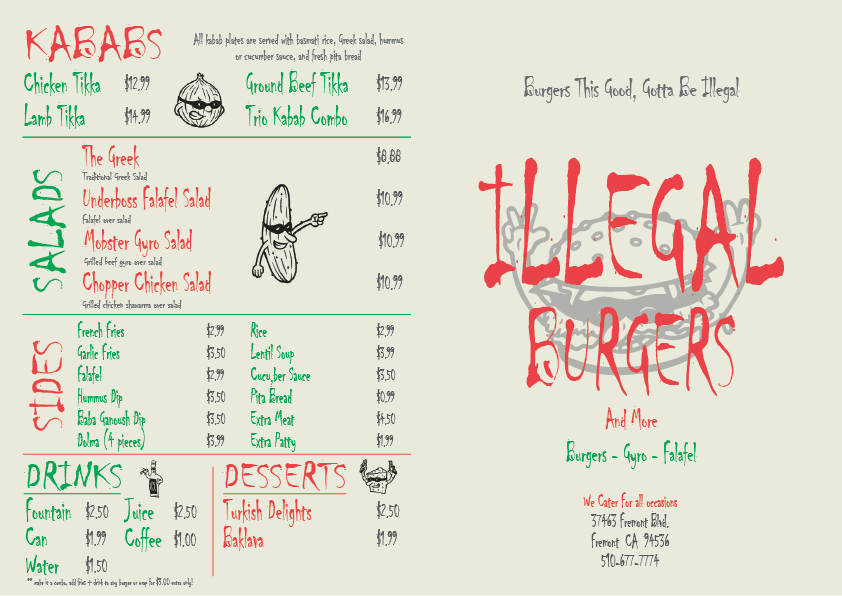 KABABS
All kabab plates are served with basmati rice, Greek salad, hummus
or cucumber sauce, and fresh pita bread
Chicken Tikka $12.99
Lamb Tikka $14.99
Ground Beef Tikka $13.99
Trio Kabab Combo $16.99
SALADS
The Greek $8.88
Traditional Greek Salad
Underboss Falafel Salad $10.99
Falafel over salad
Mobster Gyro Salad $10.99
Grilled beef gyro over salad
Chopper Chicken Salad $10.99
Grilled chicken shawarma over salad
SIDES
French Fries $2.99
Garlic Fries $3.50
Falafel $2.99
Hummus Dip $3.50
Baba Ganoush Dip $3.50
Dolma (4 pieces) $3.99
Rice $2.99
Lentil Soup $3.99
Cucu,ber Sauce $3.50
Pita Bread $0.99
Extra Meat $4.50
Extra Patty $1.99
DRINKS
Fountain $2.50
Can $1.99
Water $1.50
Juice $2.50
Coffee $1.00
DESSERTS
Turkish Delights $2.50
Baklava $1.99
** make it a combo, add fries + drink to any burger or wrap for $3.00 extra only!
Burgers This Good, Gotta Be Illegal
ILLEGAL
BURGERS
And More
Burgers - Gyro - Falafel
We Cater For all occasions
37463 Fremont Blvd.
Fremont CA 94536
510-677-7774